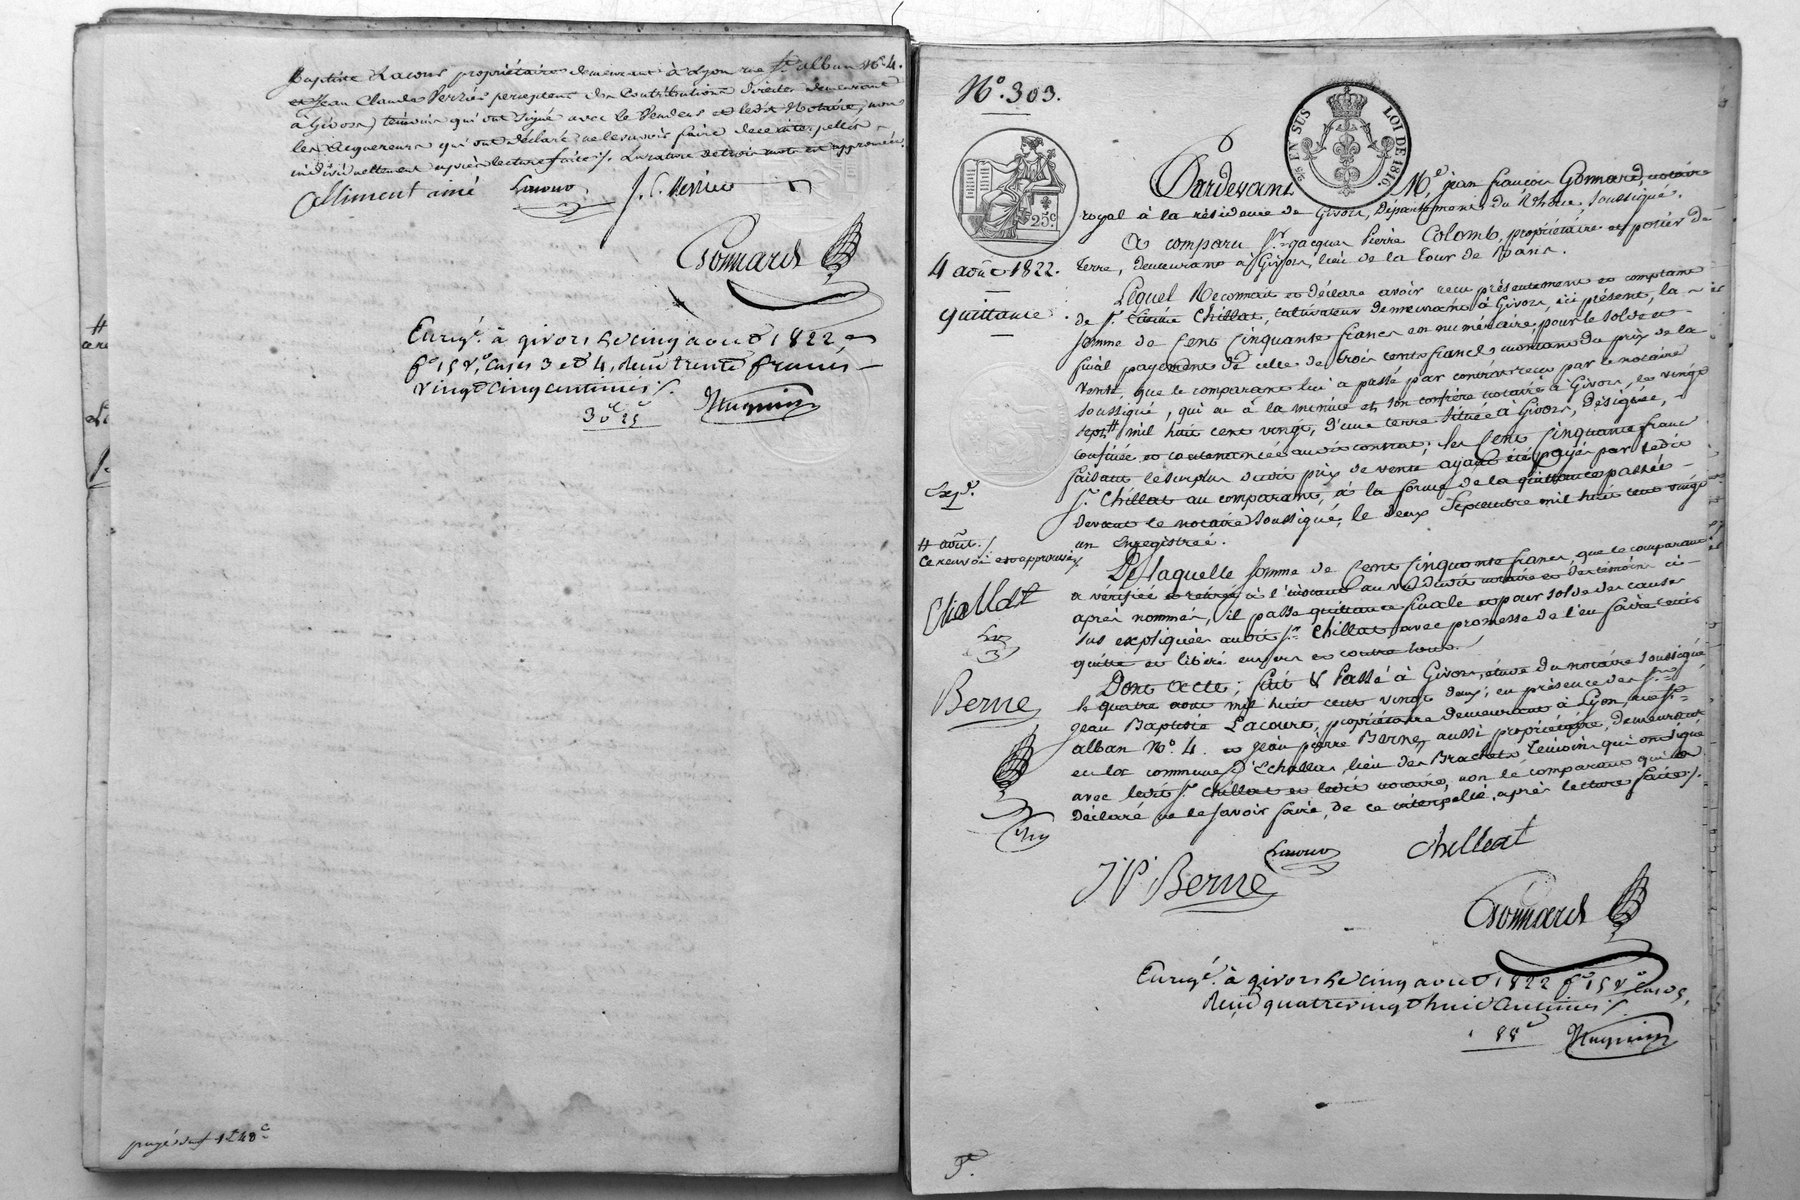 Baptiste Lacour propriétaire demeurant à Lyon rue St. alban No. 4.
et Jean Claude Verrier percepteur des Contributions directes demeurant
à Givors, témoins qui ont signé avec le Vendeur et ledit Notaire, non
les Acquereurs qui ont déclaré ne le savoir faire de ce interpellés
individuellement après lecture faite ./. La rature de trois mots est approuvée,
Alliment ainé Lacour J. C. Verrier
Gonnard
Enregé. à givors le cinq aout 1822,
fo. 15 vo. cases 3 et 4, reçu trente francs
vingt cinq centimes ./.
30f 25c Huguenin
No. 303.
25 EN SUS LOI DE 1816.
25c.
Pardevant Me. jean françois Gonnard, notaire
royal à la résidence de Givors, Département du Rhône, soussigné.
A comparu Sr. jacques Pierre Colomb, propriétaire et potier de
4 août 1822. terre, demeurant à Givors, lieu de la tour de Bans.
quittance Lequel Reconnait et déclare avoir reçu présentement et comptant
de Sr. Chillat, cultivateur demeurant à Givors, ici présent, la
somme de Cent Cinquante francs en numéraire, pour le solde et
final payement de celle de trois cents francs montant du prix de la
Vente, que le comparant lui a passé par contrat reçu par le notaire
soussigné, qui en a la minute et son confrère notaire à Givors, le vingt
sept # mil huit cent vingt, d'une terre située à Givors, désignée,
confinée et contenancée audit contrat; les Cent Cinquante francs
faisant le surplus dudit prix de vente ayant été payés par ledit
Expd. Sr. Chillat au comparant, à la forme de la quittance passée
devant le notaire soussigné, le deux Septembre mil huit cent vingt
un enregistrée.
# août ./.
Ce renvoi est approuvé
Chillat
Berne
De laquelle somme de Cent Cinquante francs, que le comparant
a vérifiée et retirée à l'instant au vu dudit notaire et des témoins ci-
après nommés, il passe quittance finale et pour solde des causes
sus expliquées audit Sr. Chillat, avec promesse de l'en faire tenir
quitte et libéré envers et contre tous.
Dont acte; fait & Passé à Givors, étude du notaire soussigné
le quatre aout mil huit cent vingt deux; en présence des Srs.
jean Baptiste Lacour, propriétaire demeurant à Lyon, rue St.
alban No. 4. et jean pierre Berne, aussi propriétaire, demeurant
en la commune d'Echallas, lieu des Brachets, témoins qui ont signé
avec ledit Sr. Chillat et ledit notaire, non le comparant qui a
déclaré ne le savoir faire, de ce interpellé, après lecture faite ./.
Lacour chillat
JP Berne
Gonnard
Enregé. à givors le cinq aout 1822 fo. 15 vo. case 5,
Reçu quatre vingt huit centimes ./.
88c Huguenin